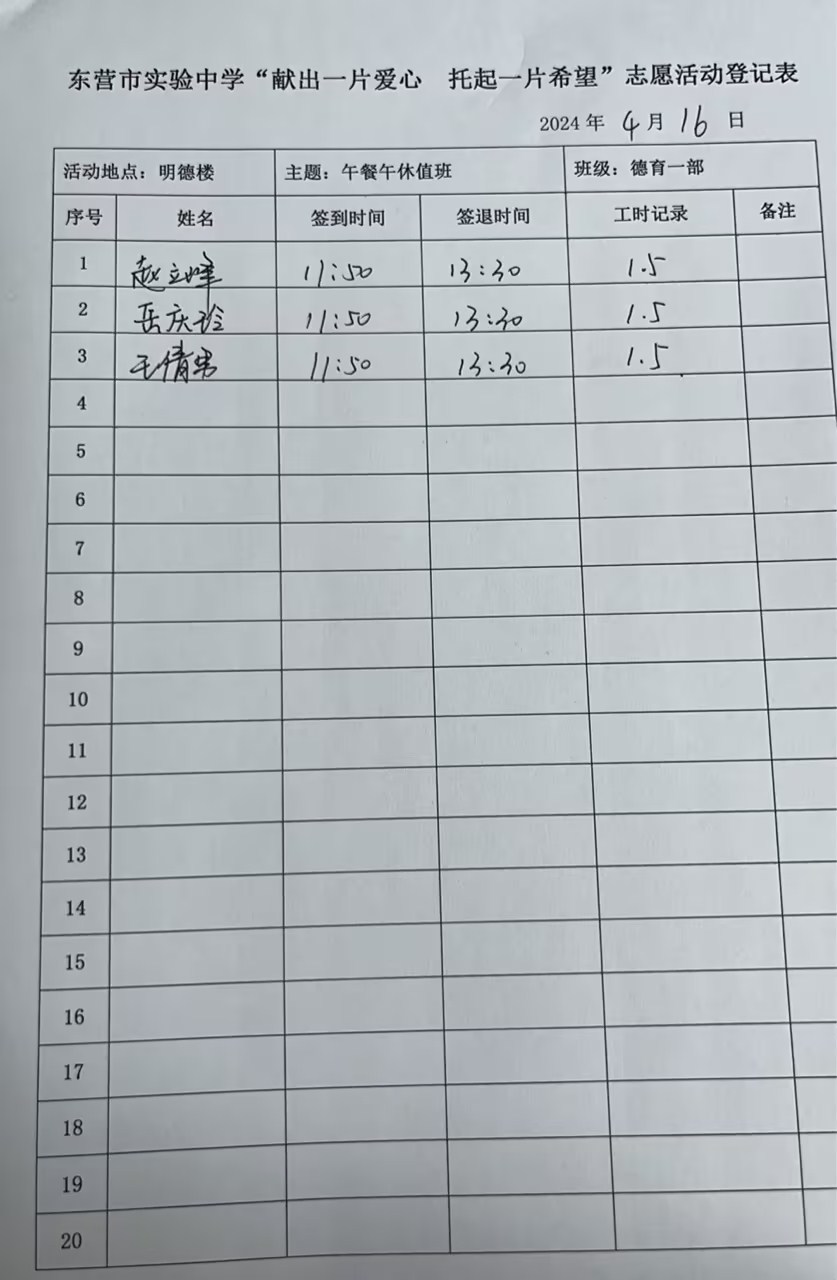 东营市实验中学“献出一片爱心 托起一片希望”志愿活动登记表
2024 年 4 月 16 日
活动地点：明德楼 主题：午餐午休值班 班级：德育一部
序号 姓名 签到时间 签退时间 工时记录 备注
1 赵立峰 11:50 13:30 1.5
2 岳庆玲 11:50 13:30 1.5
3 王倩男 11:50 13:30 1.5
4
5
6
7
8
9
10
11
12
13
14
15
16
17
18
19
20